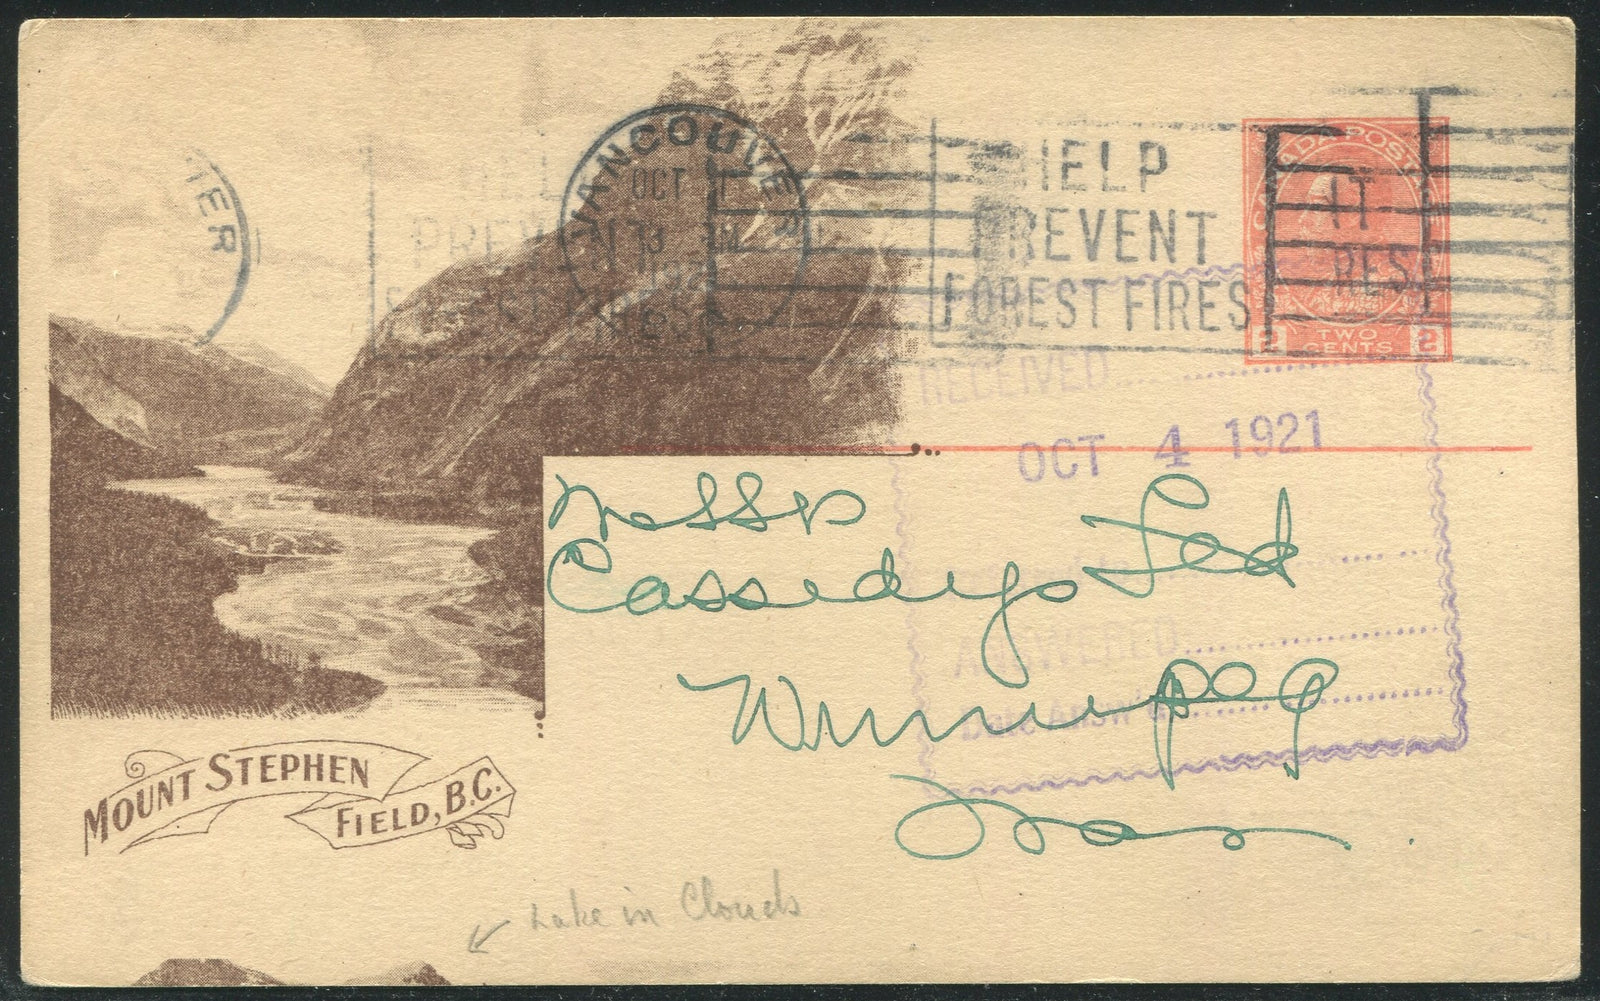 VANCOUVER
OCT 1
1921
HELP
PREVENT
FOREST FIRES
IT
RES
CANADA POSTAGE
TWO
CENTS
2 2
VER
PREVEN
RECEIVED
OCT 4 1921
ANSWERED
Messrs
Cassedys Ltd
Winnipeg
Man.
MOUNT STEPHEN
FIELD, B.C.
Lake in Clouds